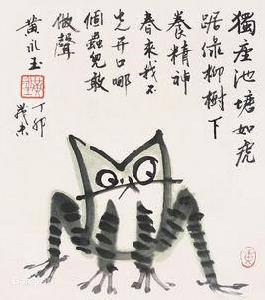 獨座池塘如虎
踞綠柳樹下
養精神
春來我不
先開口哪
個蟲兒敢
做聲
黃永玉
丁卯
歲末